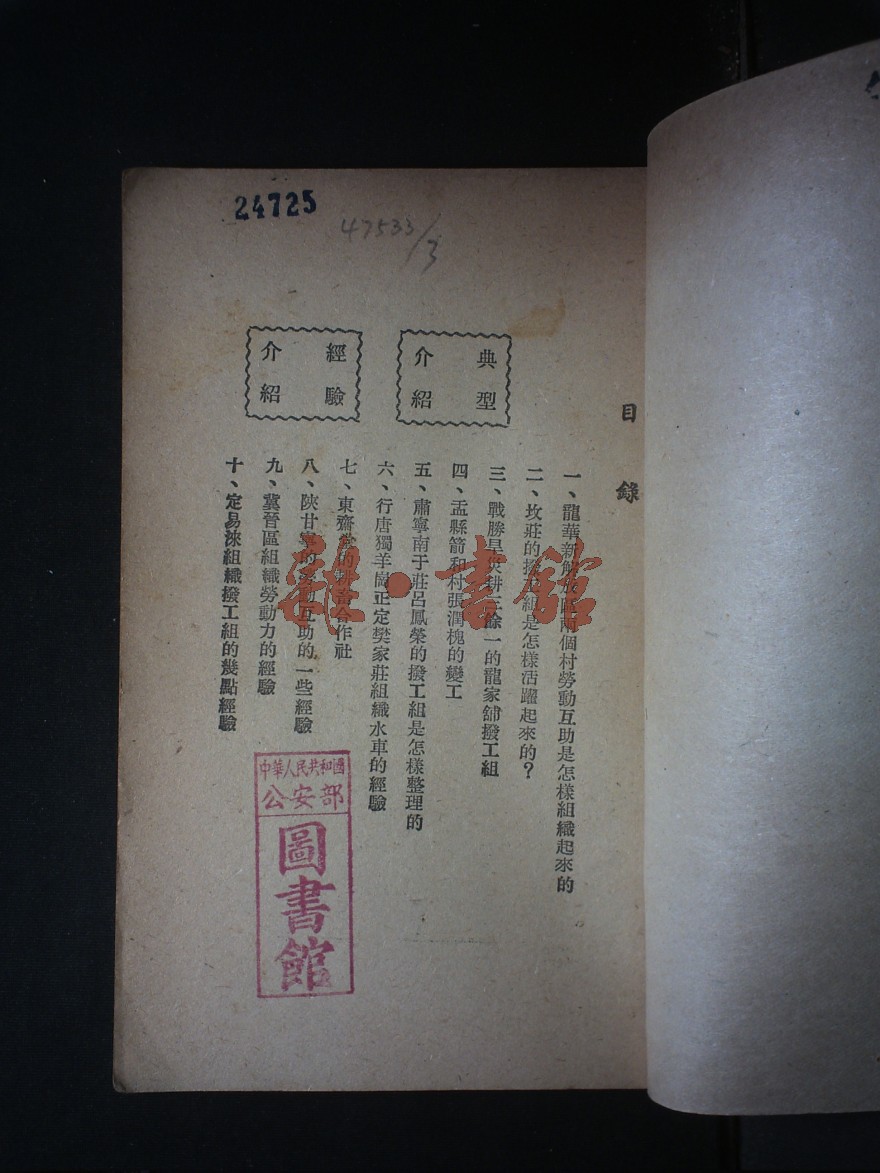 24725
47533/3
目錄
典型介紹
一、龍華新解放區兩個村勞動互助是怎樣組織起來的
二、坟莊的撥工組是怎樣活躍起來的？
三、戰勝旱災耕三餘一的龍家舖撥工組
四、盂縣箭和村張潤槐的變工
五、肅寧南于莊呂鳳榮的撥工組是怎樣整理的
六、行唐獨羊崗正定樊家莊組織水車的經驗
經驗介紹
七、東齋堂的耕畜合作社
八、陝甘寧的勞動互助的一些經驗
九、冀晉區組織勞動力的經驗
十、定易淶組織撥工組的幾點經驗
中華人民共和國
公安部
圖書館
雜·書館